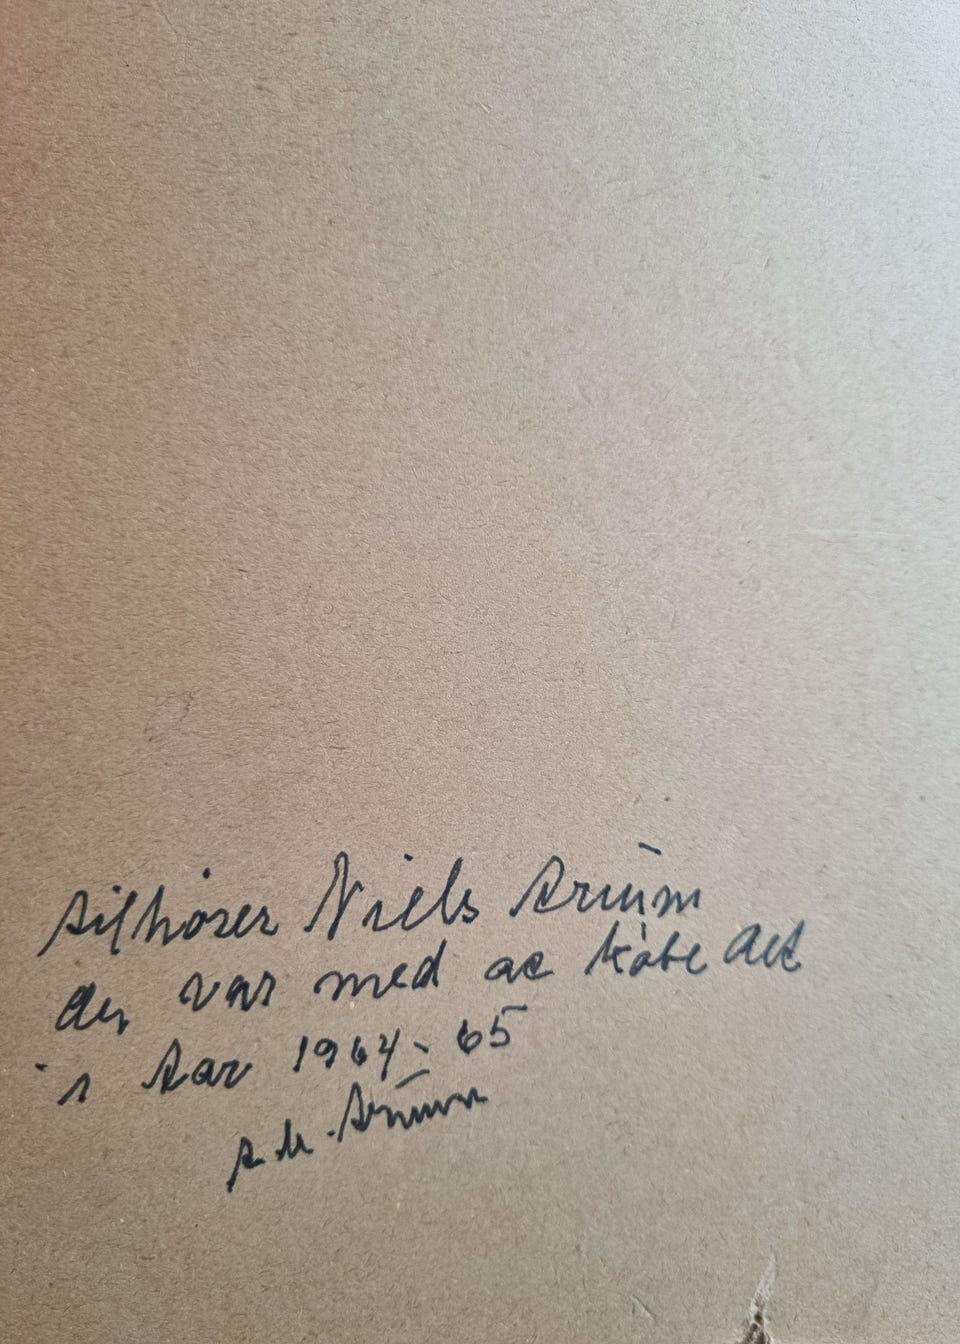 tilhører Niels Bruun
der var med at købe det
i Aar 1964-65
Bruun